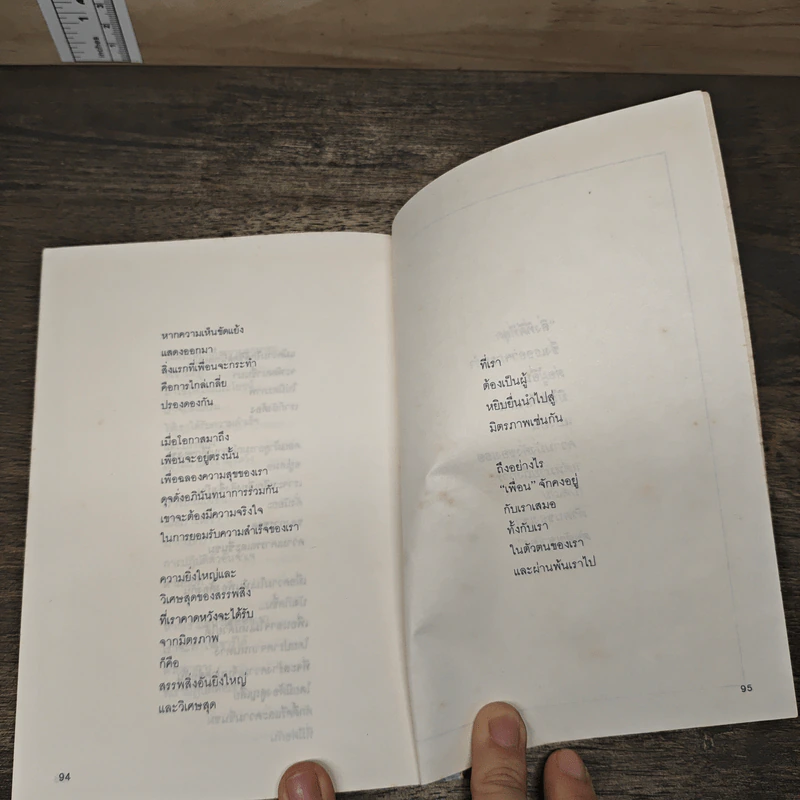 หากความเห็นขัดแย้ง
แสดงออกมา
สิ่งแรกที่เพื่อนจะกระทำ
คือการไกล่เกลี่ย
ปรองดองกัน
เมื่อโอกาสมาถึง
เพื่อนจะอยู่ตรงนั้น
เพื่อฉลองความสุขของเรา
ดุจดั่งอภินันทนาการร่วมกัน
เขาจะต้องมีความจริงใจ
ในการยอมรับความสำเร็จของเรา
ความยิ่งใหญ่และ
วิเศษสุดของสรรพสิ่ง
ที่เราคาดหวังจะได้รับ
จากมิตรภาพ
ก็คือ
สรรพสิ่งอันยิ่งใหญ่
และวิเศษสุด
94
ที่เรา
ต้องเป็นผู้
หยิบยื่นนำไปสู่
มิตรภาพเช่นกัน
ถึงอย่างไร
“เพื่อน” จักคงอยู่
กับเราเสมอ
ทั้งกับเรา
ในตัวตนของเรา
และผ่านพ้นเราไป
95